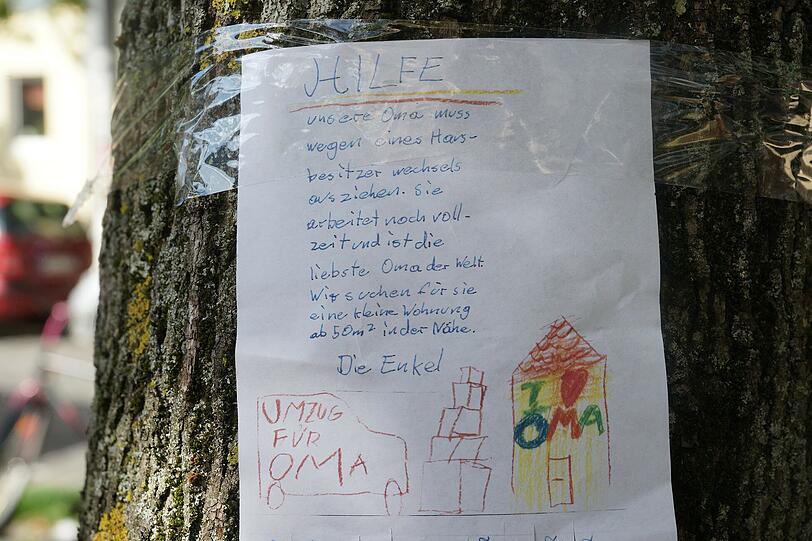 HILFE
unsere Oma muss
wegen eines Haus-
besitzer wechsels
ausziehen. Sie
arbeitet noch voll-
zeit und ist die
liebste Oma der Welt.
Wir suchen für sie
eine kleine Wohnung
ab 50m² in der Nähe.
Die Enkel
UMZUG
FÜR
OMA
I ♥
OMA